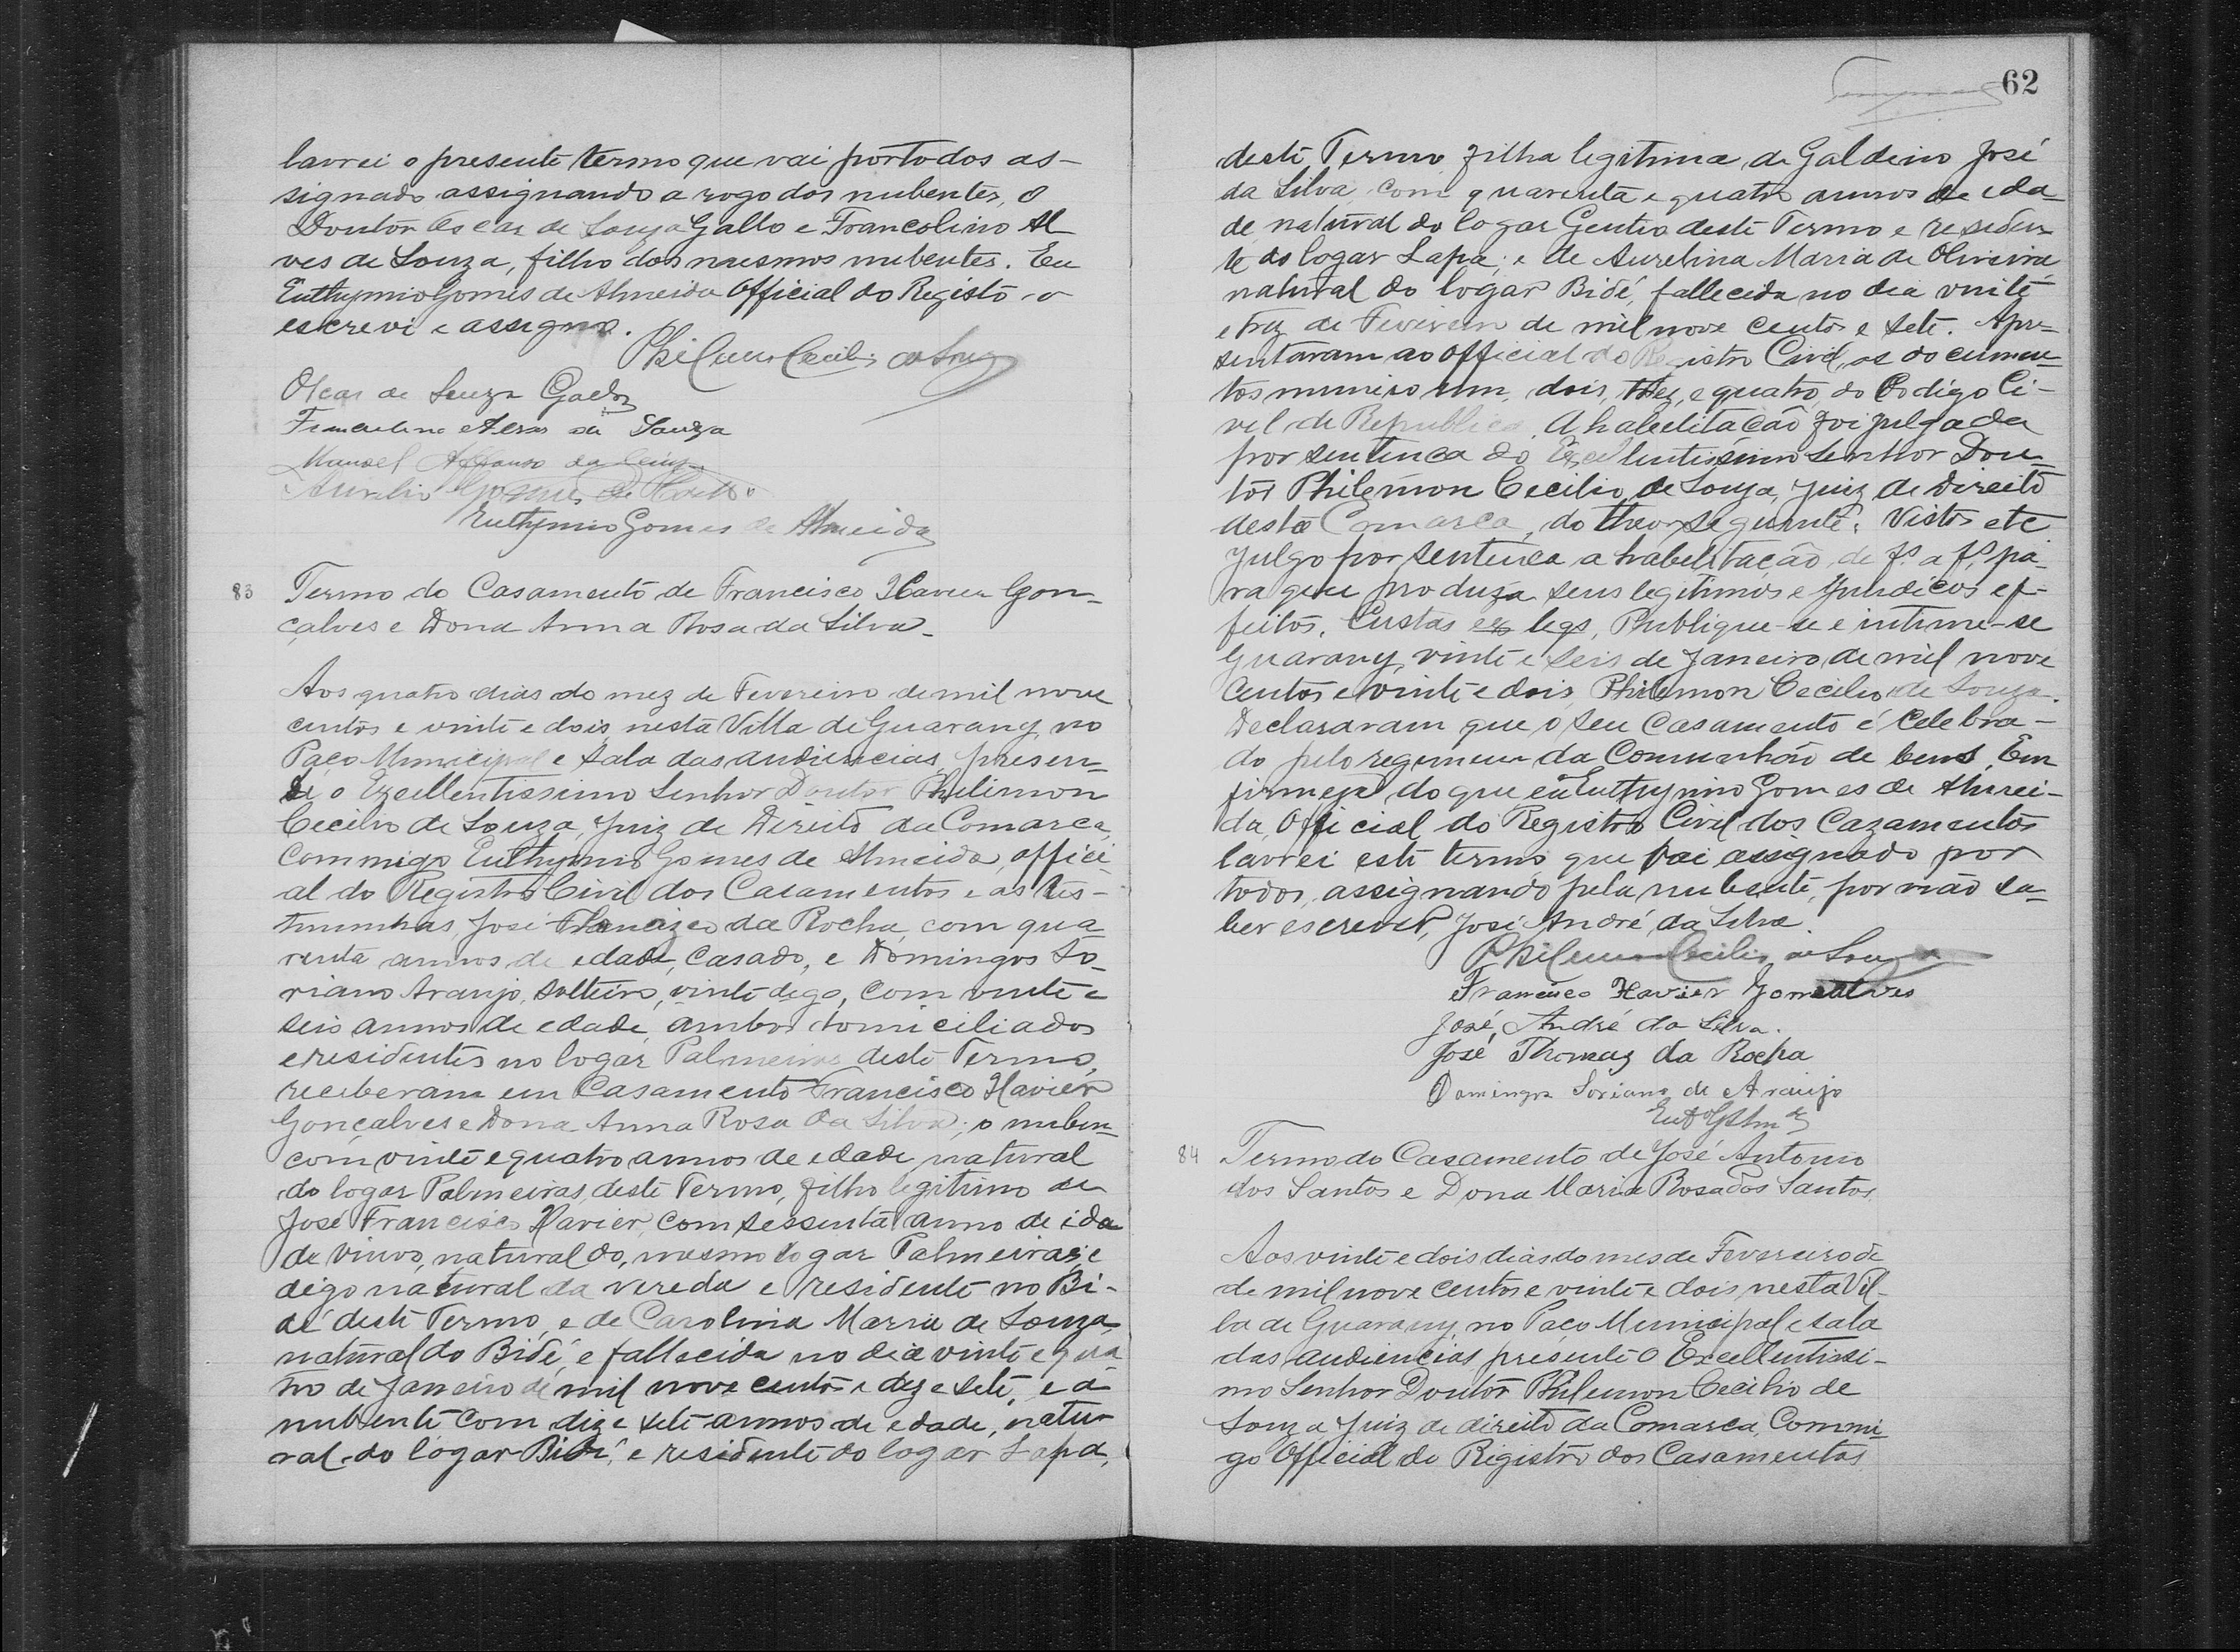 lavrei o presente termo que vai por todos as-
signado assignando a rogo dos nubentes, o
Doutor Oscar de Souza Gallo e Francolino Al
ves de Souza, filho dos mesmos nubentes. Eu
Euthymio Gomes de Almeida Official do Registo o
escrevi e assigno.
Philemon Cecilio de Souza
Oscar de Souza
Francolino Alves de Souza
Manoel Affonso da
Aurelio Gomes de
Euthymio Gomes de Almeida
83 Termo do Casamento de Francisco Xavier Gon-
çalves e Dona Anna Rosa da Silva_
Aos quatro dias do mez de Fevereiro de mil nove
centos e vinte e dois, nesta Villa de Guarany, no
Paço Municipal e sala das audiencias, presen-
te o Excellentissimo Senhor Doutor Philimon
Cecilio de Souza, Juiz de Direito da Comarca,
Commigo Euthymio Gomes de Almeida, offici-
al do Registro Civil dos Casamentos e as tes-
timunhas, José da Rocha, com qua
renta annos de edade, Casado, e Domingos So-
riano Araujo, solteiro, vinte digo, com vinte e
seis annos de edade, ambos domiciliados
e residentes no logar Palmeiras deste Termo,
receberam em Casamento Francisco Xavier
Gonçalves e Dona Anna Rosa da Silva; o nuben-
com vinte e quatro annos de edade, natural
do logar Palmeiras, deste Termo, filho legitimo de
José Francisco Xavier, com sessenta anno de ida
de viuvo, natural do, mesmo logar Palmeiras, e
digo natural da vereda e residente no Bi-
dé deste Termo, e de Carolina Maria de Souza,
natural do Bidé, e fallecida no dia vinte e qua
tro de Janeiro de mil nove centos e dez e sete, e a
nubente com diz e sete annos de edade, natu-
ral do logar Bidé, e residente do logar Lapa,
62
deste Termo, filha legitima, de Galdino José
da Silva, com quarenta e quatro annos de eda-
de, natural do logar Gentio deste Termo e residen
te do logar Lapa; e de Aurelina Maria de Oliveira
natural do logar Bidé, fallecida no dia vinte
e trez de Fevereiro de mil nove centos e sete. Apre-
sentaram ao official do Registro Civil, os documen-
tos numero um, dois, trez, e quatro, do Codigo Ci-
vel da Republica. A habelitação foi julgada
por sentença do Excellentissimo Senhor Dou-
tor Philemon Cecilio de Souza, Juiz de Direito
desta Comarca, do theor seguinte: Vistos etc
Julgo por sentença a habelitação de fs a fs, pa-
ra que produza seus legitimos e juridicos ef-
feitos. Custas ex legs, Publique-se e intime-se
Guarany, vinte e seis de Janeiro de mil nove
Centos e vinte e dois, Philemon Cecilio de Souza.
Declararam que o seu Casamento é Celebra-
do pelo regimen da Comunhão de bens. Em
firmeza do que eu Euthymio Gomes de Almei-
da, Official do Registro Civil dos Cazamentos
lavrei este termo que vai assignado por
todos, assignando pela nubente, por não sa-
ber escrever, José André da Silva.
Philemon Cecilio de Souza
Francisco Xavier Gonçalves
José, André da Silva.
José Thomaz da Rocha
Domingos Soriano de Araujo
84 Termo do Casamento de José Antonio
dos Santos e Dona Maria Rosa dos Santos.
Aos vinte e dois dias do mes de Fevereiro de
de mil nove centos e vinte e dois nesta Vil-
la de Guarany, no Paço Municipal e sala
das audiencias, presente o Excellentissi-
mo Senhor Doutor Philemon Cecilio de
Souza, Juiz de direito da Comarca, Commi-
go Official do Registro dos Casamentos